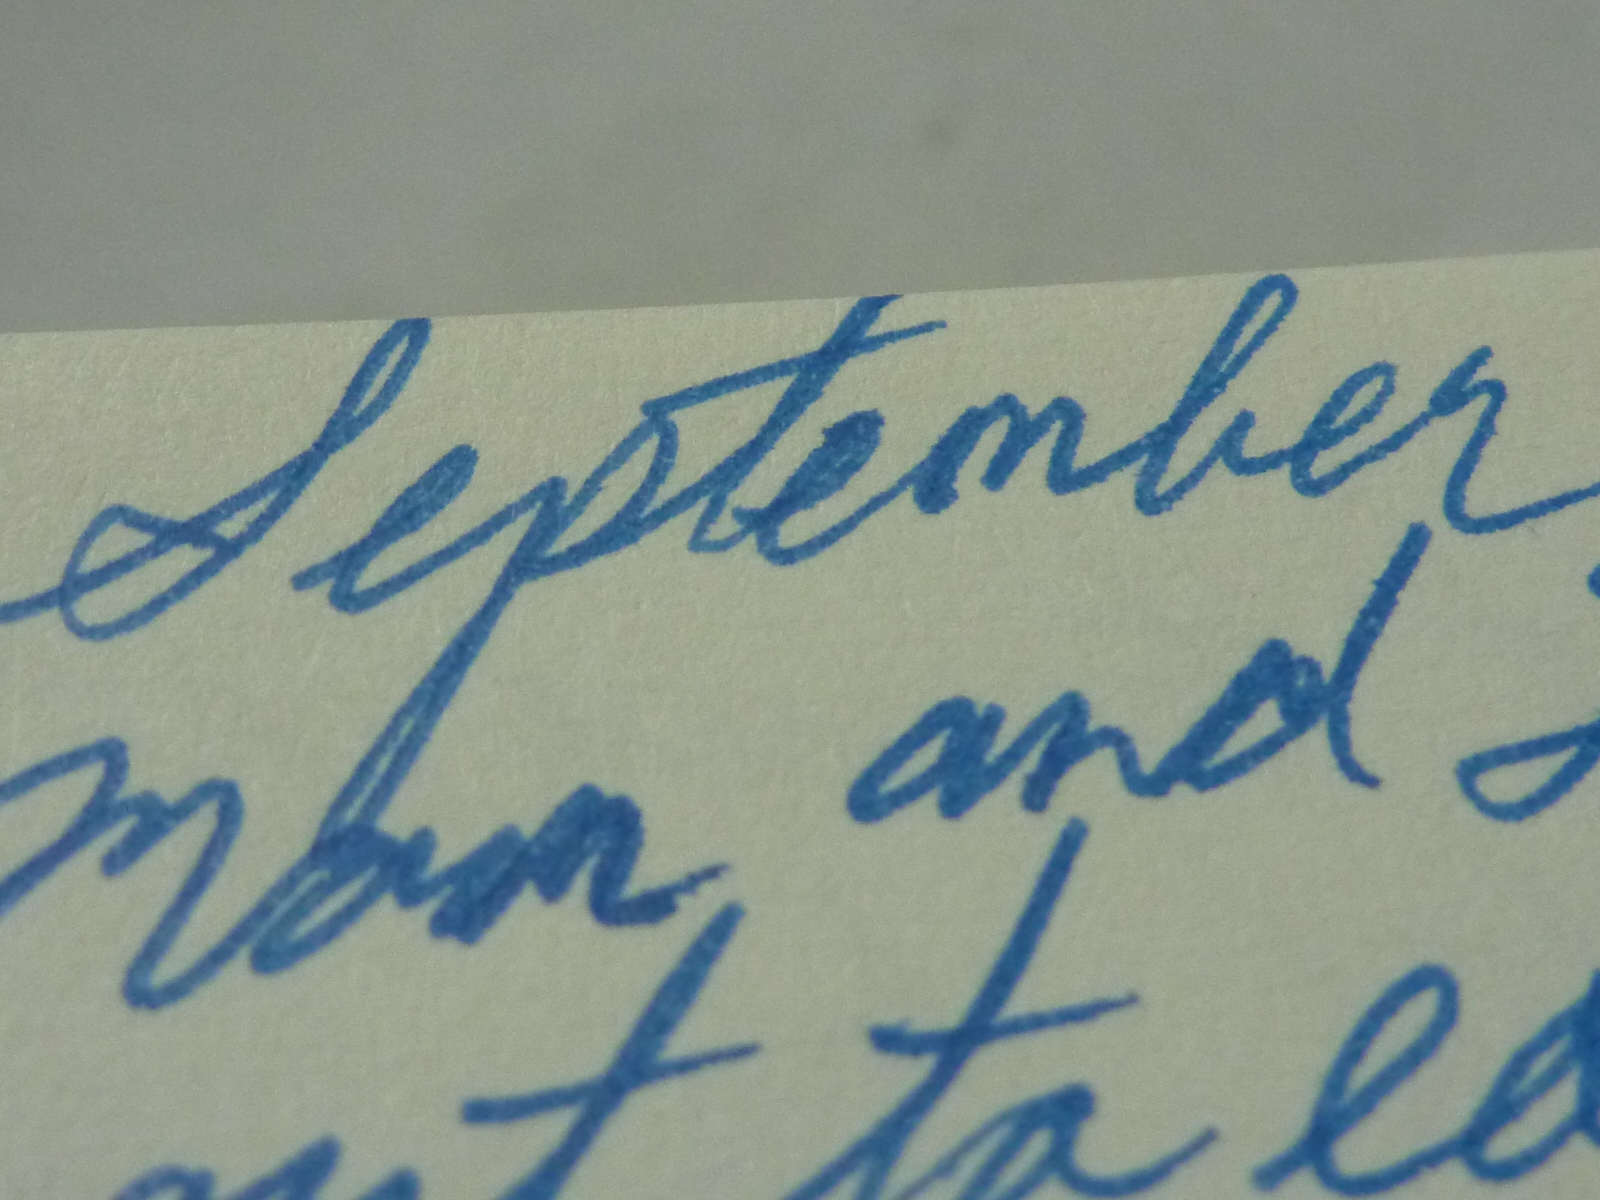 September
Mom and
to